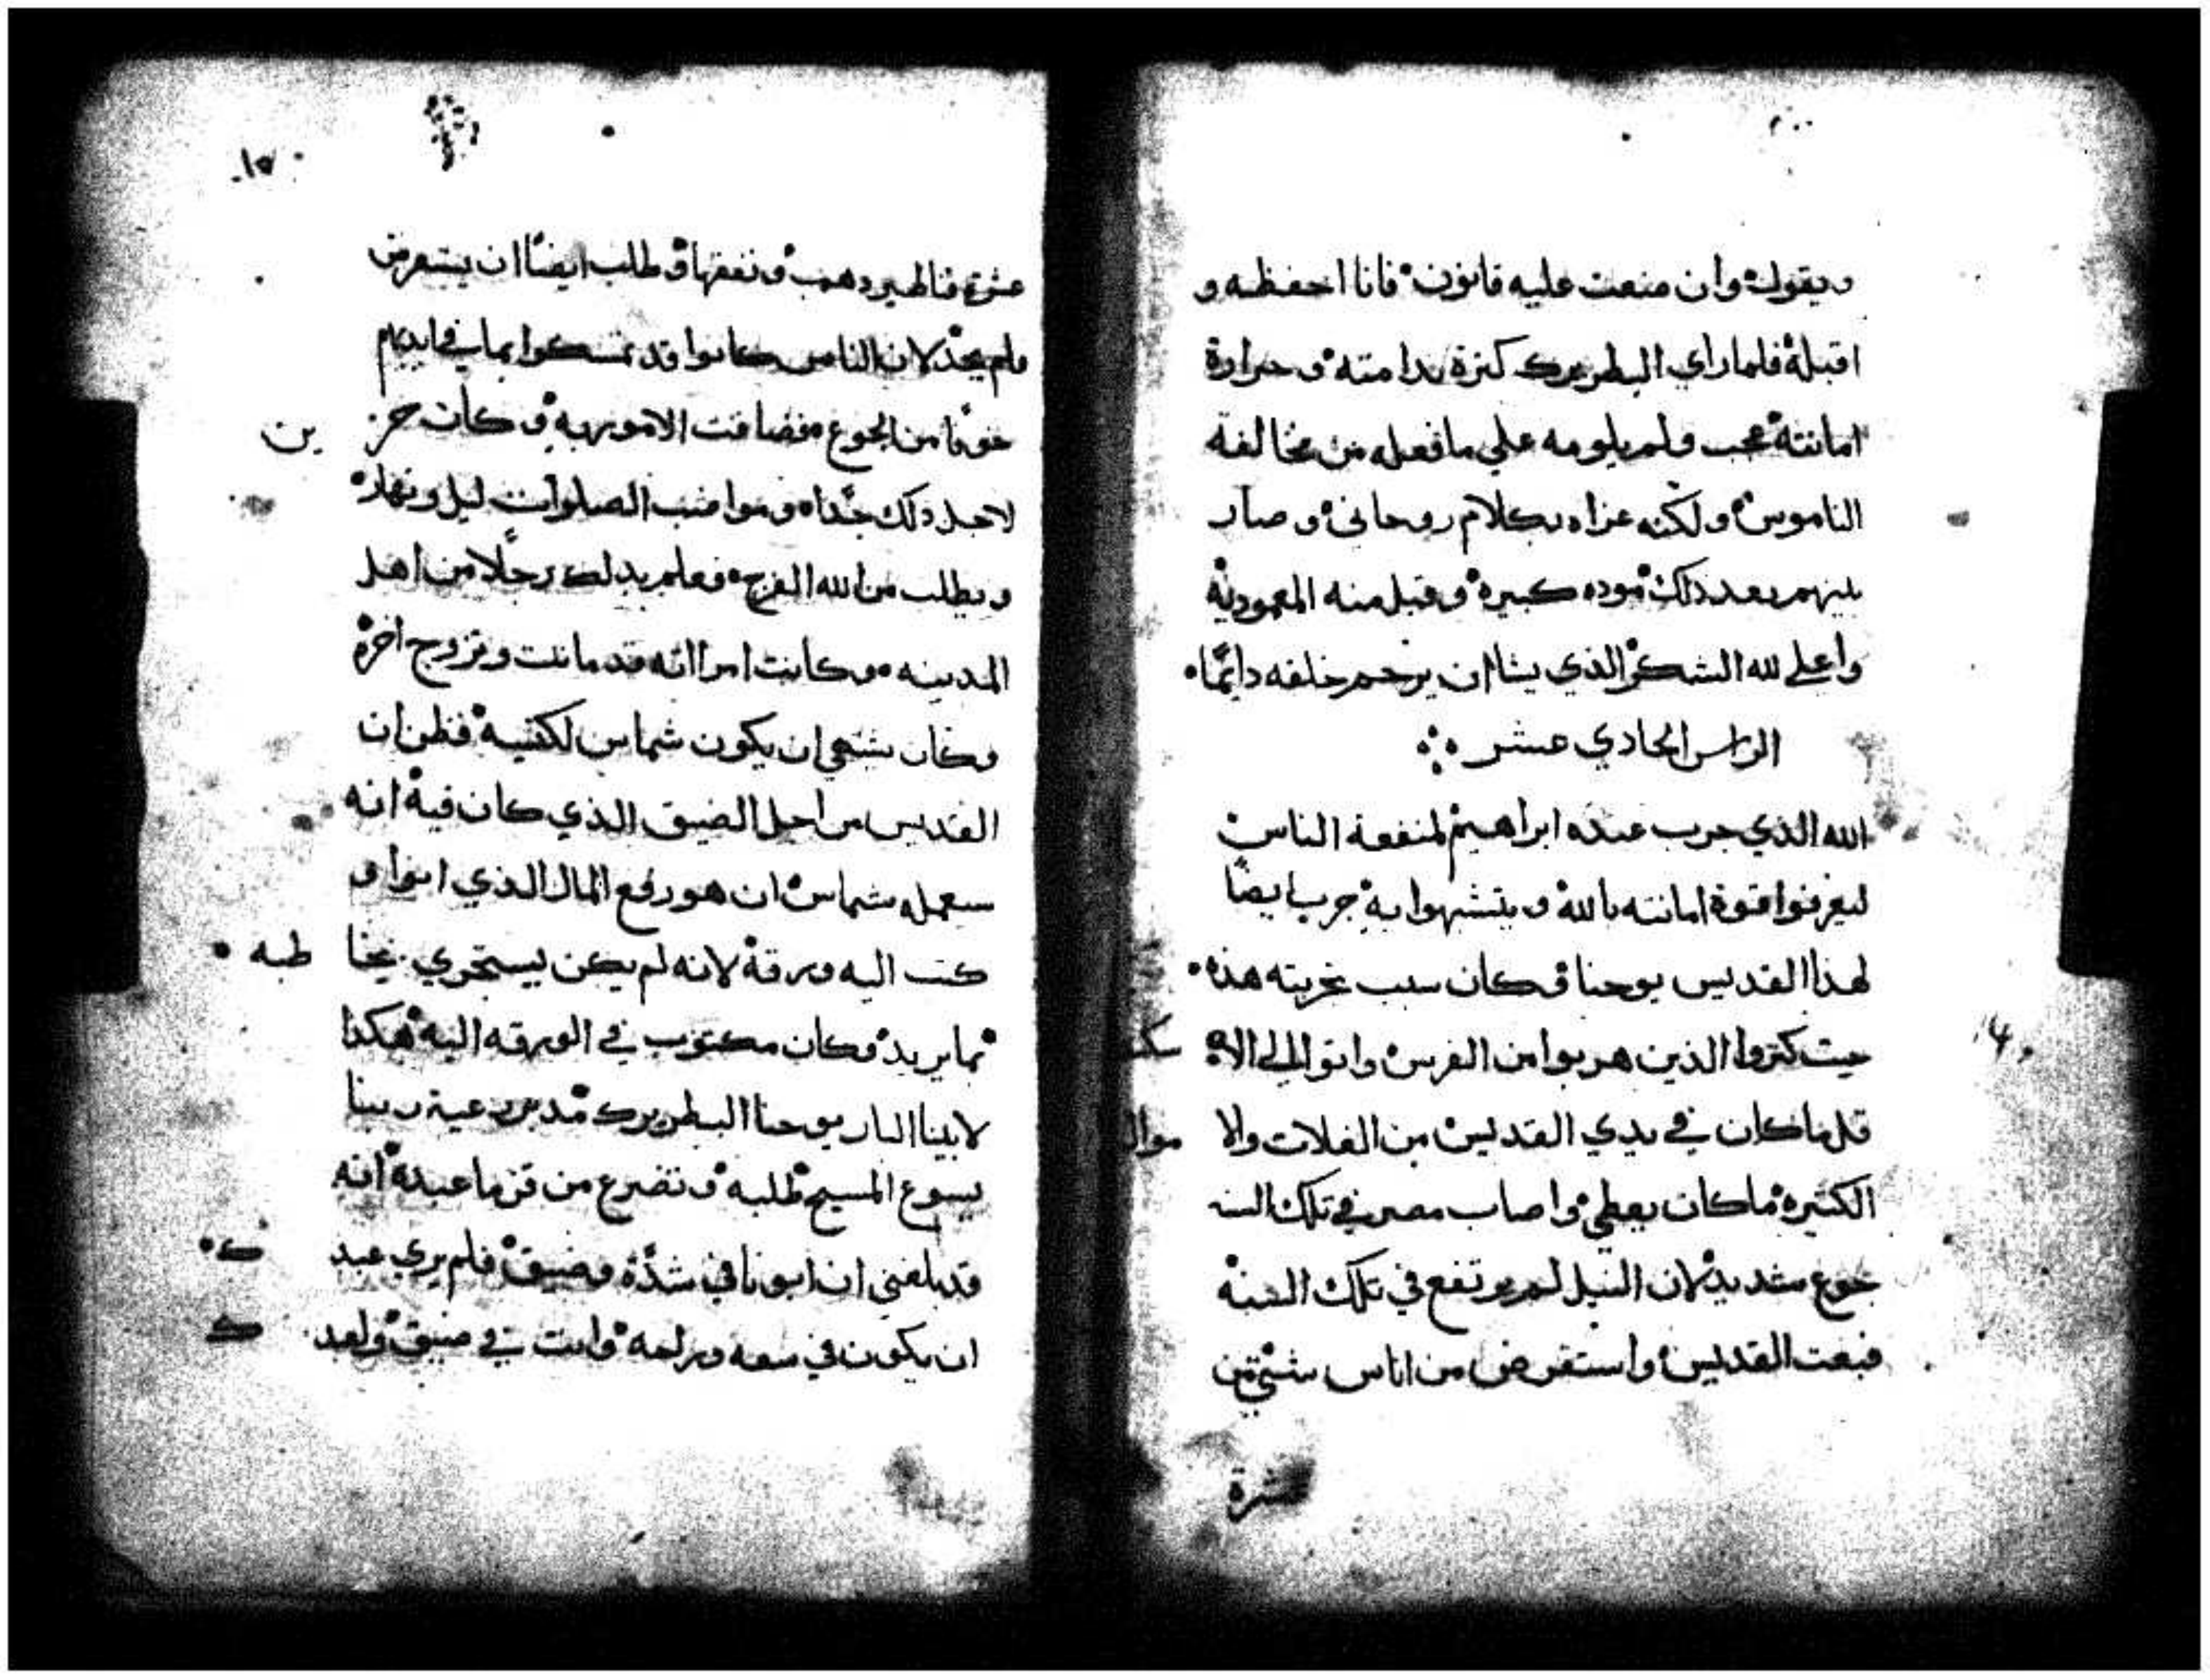 ويقول وان منعت عليه قانون فانا احفظه و
اقبله فلما راي البطريرك كثرة ندامته وحرارة
امانته عجب ولم يلومه علي ما فعله من مخالفة
الناموس ولكنه عزاه بكلام روحاني وصار
بينهم بعد ذلك موده كبيرة وقبل منه المعمودية
واعلي لله الشكر الذي يشا ان يرحم خلقه دايمًا
الراس الحادي عشر
الله الذي جرب عبده ابراهيم لمنفعة الناس
ليعرفوا قوة امانته بالله ويتشبهوا به جرب ايضًا
لهذا القديس يوحنا وكان سبب تجربته هذه
حيث كتروا الذين هربوا من الفرس واتوا الي الاسكند
قل ما كان في يدي القديس من الغلات والا موال
الكتيره ما كان يعطي واصاب مصر في تلك السنه
جوع شديد لان النيل لم يرتفع في تلك السنه
فبعت القديس واستقرض من اناس شتي من
عشرة
١٥
عشرة قناطير دهب ونفقها وطلب ايضًا ان يستقرض
فلم يجد لان الناس كانوا قد تمسكوا بما في ايديهم
خوفًا من الجوع فضاقت الامور به وكان حزين
لاجل ذلك جدًا ومواضب الصلوات ليل ونهار
ويطلب من الله الفرج فعلم بدلك رجلًا من اهل
المدينه وكانت امراته قد ماتت وتزوج اخرة
وكان يشتهي ان يكون شماس لكنيسة فظن ان
القديس من اجل الضيق الذي كان فيه انه
سيعمله شماس ان هو دفع المال الذي
كتب اليه ورقة لانه لم يكن يستجري يخاطبه
بما يريد وكان مكتوب في الورقه اليه هكدا
لابينا البار يوحنا البطريرك مدبر رعية ربنا
يسوع المسيح طلبه وتضرع من قزما عبده انه
قد بلغني ان ابونا في شدة وضيق فلم يري عبدك
ان يكون في سعه وراحه وانت في ضيق ولعبدك